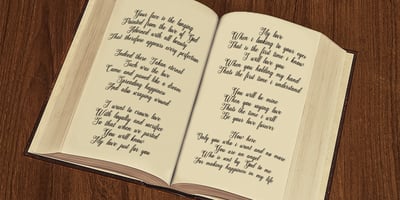 Your face is the longing
Painted from the love of God
Adorned with all beauty
That therefore appears every perfection
Indeed these Token eternal
Such was the love
Came and poured like a storm
Spreading happiness
And also scraping wound
I want to crown love
With loyalty and sacrifice
So that when we parted
You will know
My love just for you
My love
When i looking to your eyes
That is the first time i know
I will love you
When you holding my hand
Thats the first time i understand
You will be mine
When you saying love
Thats the time i will
Be your love forever
Now here
Only you who i want and no more
You are an angel
Who is sent by God to me
For making happiness in my life